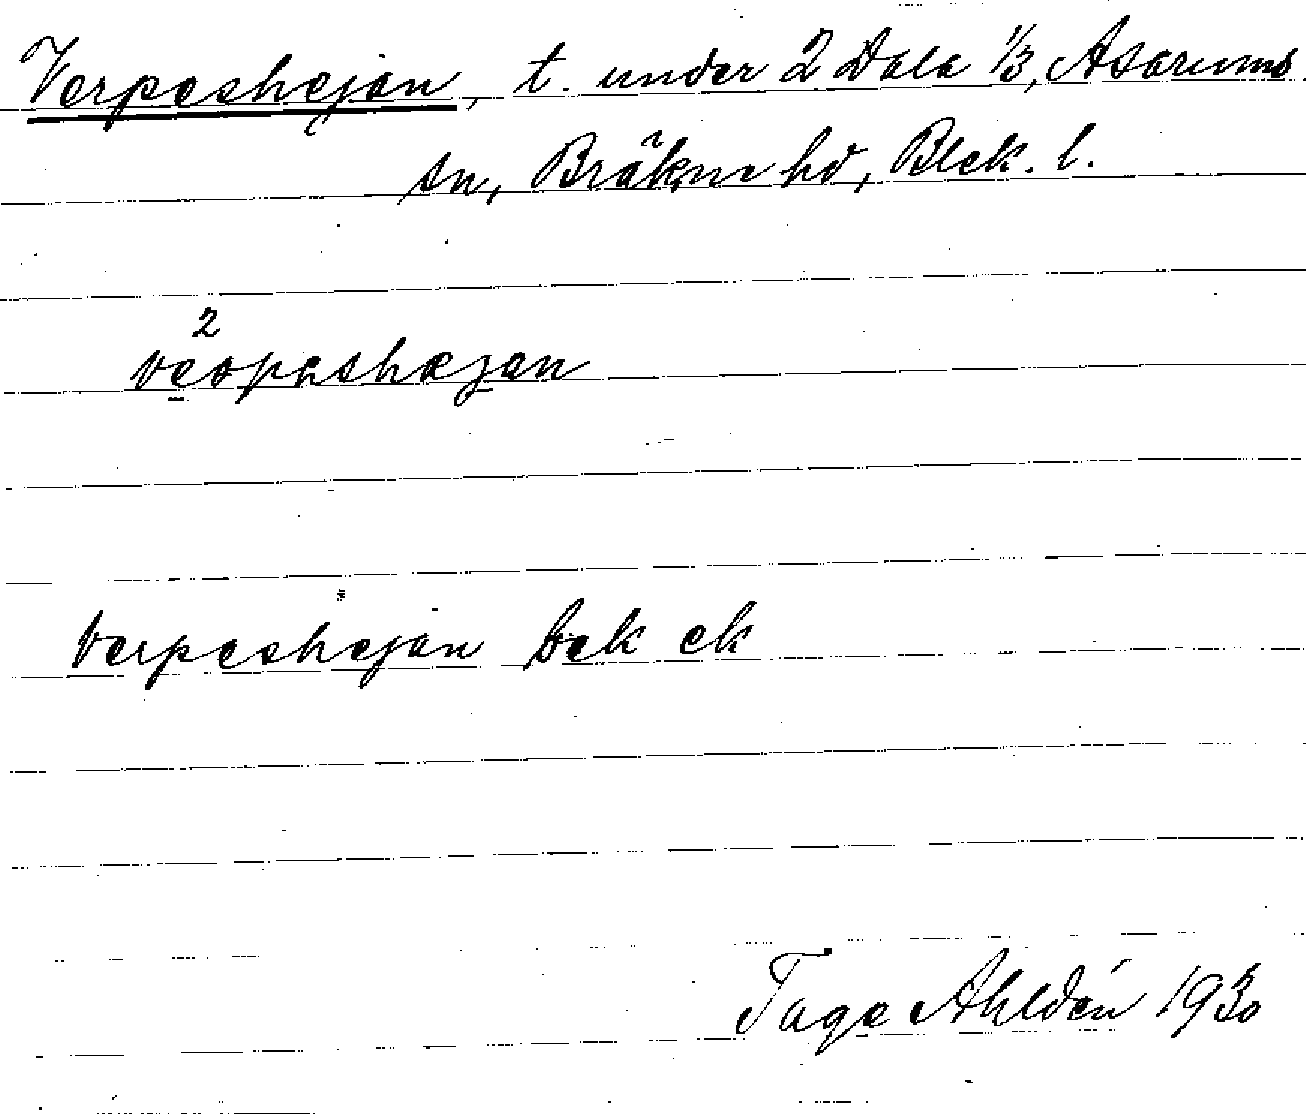 Verpeshejan, t. under 2 Dala 1/3, Asarums
sn, Bräkne hd, Blek. l.
2
Verpeshejan Eek ek
Tage Ahldén 1930